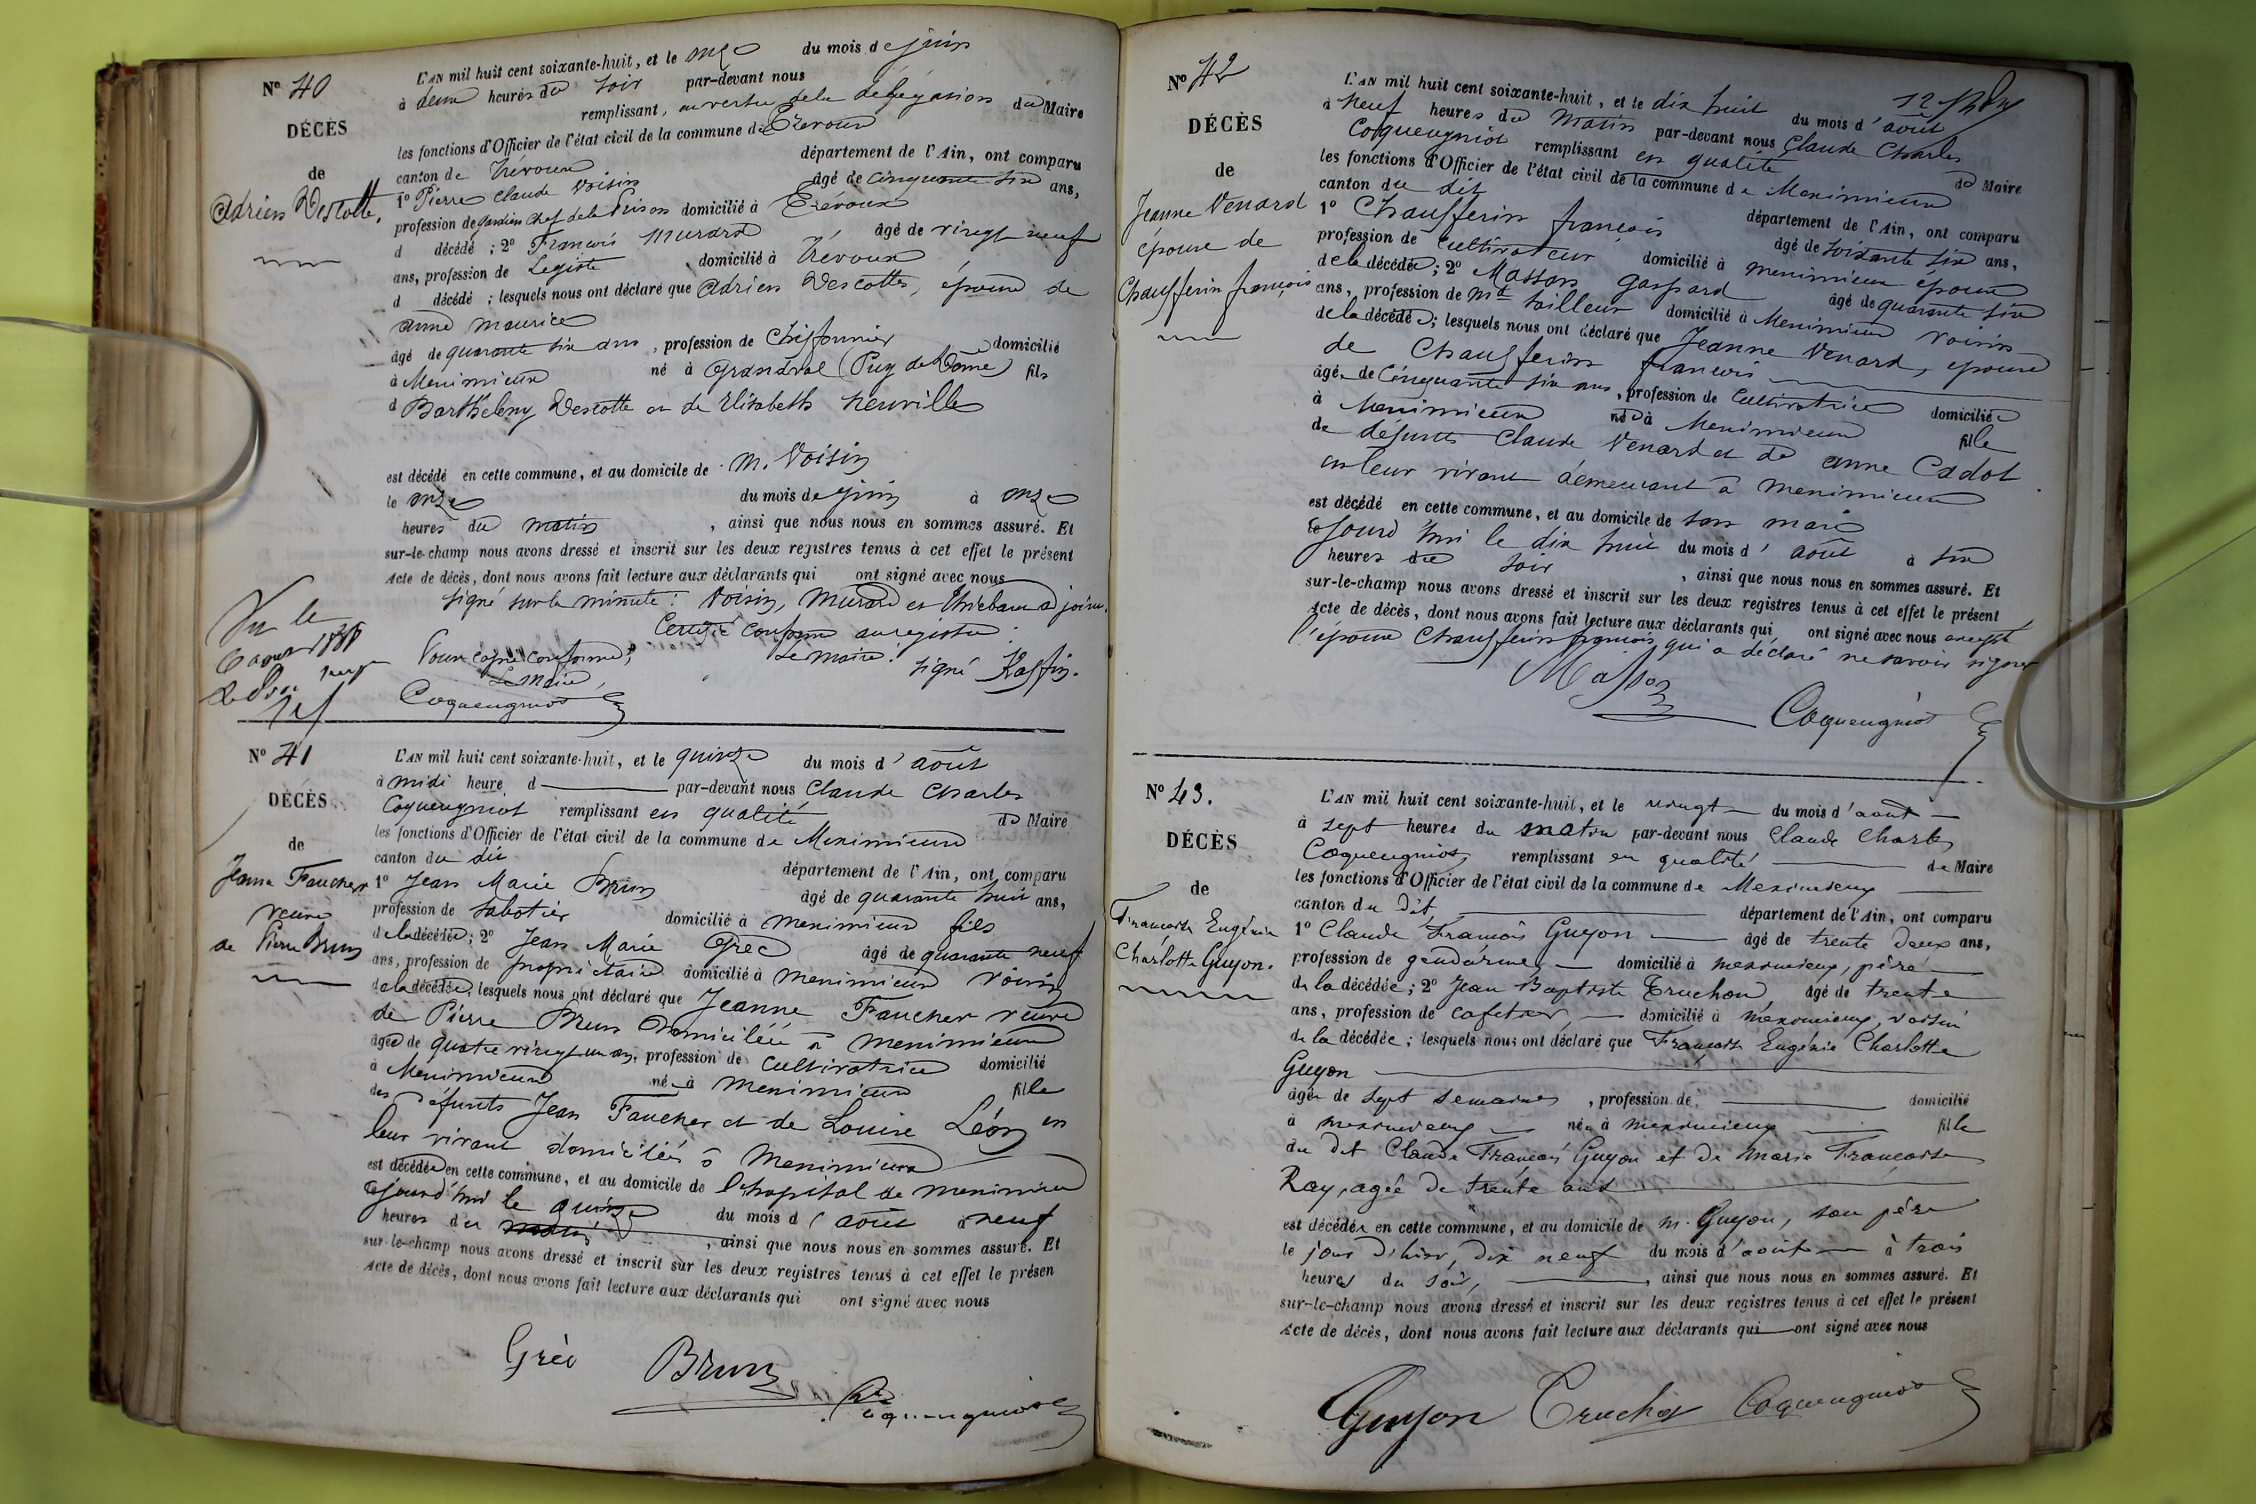 N° 40
DÉCÈS
de
Adrien Descotte.
L'AN mil huit cent soixante-huit, et le onze du mois de juin
à deux heures du soir par-devant nous
remplissant, en vertu de la délégation du Maire
les fonctions d'Officier de l'état civil de la commune de Trévoux
canton de Trévoux département de l'Ain, ont comparu
1° Pierre Claude Voisin âgé de cinquante six ans,
profession de gardien chef de la Prison domicilié à Trévoux
d décédé ; 2° François Murard âgé de vingt neuf
ans, profession de Legiste domicilié à Trévoux
d décédé ; lesquels nous ont déclaré que Adrien Descotte, époux de
anne maurice
âgé de quarante six ans, profession de Chiffonnier domicilié
à Meximieux né à Grandval (Puy de Dôme) fils
d Barthélemy Descotte et de Elisabeth Neuville
est décédé en cette commune, et au domicile de M. Voisin
le onze du mois de juin à onze
heures du matin, ainsi que nous nous en sommes assuré. Et
sur-le-champ nous avons dressé et inscrit sur les deux registres tenus à cet effet le présent
Acte de décès, dont nous avons fait lecture aux déclarants qui ont signé avec nous
signé sur la minute : Voisin, Murard et Thiebaud adjoint.
Certifié conforme au registre.
Le maire : signé Raffin.
Pour copie conforme,
Le Maire,
Coquengniot
Vu le
6 aout
N° 41
DÉCÈS
de
Jeanne Faucher
veuve
de Pierre Brun
L'AN mil huit cent soixante-huit, et le quinze du mois d'août
à midi heure d par-devant nous Claude Charles
Coquengniot remplissant en qualité de Maire
les fonctions d'Officier de l'état civil de la commune de Meximieux
canton du dit département de l'Ain, ont comparu
1° Jean Marie Brun âgé de quarante huit ans,
profession de sabotier domicilié à Meximieux fils
de la décédée ; 2° Jean Marie Grec âgé de quarante neuf
ans, profession de propriétaire domicilié à Meximieux Voisin
de la décédée, lesquels nous ont déclaré que Jeanne Faucher veuve
de Pierre Brun domiciliée à Meximieux
âgée de quatre vingt un ans, profession de cultivatrice domicilié
à Meximieux né à Meximieux fille
des défunts Jean Faucher et de Louise Léon en
leur vivant domiciliés à Meximieux
est décédée en cette commune, et au domicile de l'hopital de Meximieux
cejourd'hui le quinze du mois d'août à neuf
heures du matin, ainsi que nous nous en sommes assuré. Et
sur-le-champ nous avons dressé et inscrit sur les deux registres tenus à cet effet le présen
Acte de décès, dont nous avons fait lecture aux déclarants qui ont signé avec nous
Grèc Brun
Coquengniot
N° 42
DÉCÈS
de
Jeanne Venard
épouse de
Chaufferin françois
L'AN mil huit cent soixante-huit, et le dix huit du mois d'août
à Neuf heures du Matin par-devant nous Claude Charles
Coquengniot remplissant en qualité de Maire
les fonctions d'Officier de l'état civil de la commune de Meximieux
canton du dit département de l'Ain, ont comparu
1° Chaufferin françois âgé de soixante six ans,
profession de Cultivateur domicilié à Meximieux époux
de la décédée ; 2° Masson Gaspard âgé de quarante six
ans, profession de Md tailleur domicilié à Meximieux Voisin
de la décédée ; lesquels nous ont déclaré que Jeanne Venard, épouse
de Chaufferin françois
âgé de Cinquante six ans, profession de Cultivatrice domiciliée
à Meximieux née à Meximieux fille
de défunts Claude Venard et de anne Cadot
en leur vivant demeurant à Meximieux
est décédé en cette commune, et au domicile de son mari
cejourd'hui le dix huit du mois d'août à six
heures du soir, ainsi que nous nous en sommes assuré. Et
sur-le-champ nous avons dressé et inscrit sur les deux registres tenus à cet effet le présent
Acte de décès, dont nous avons fait lecture aux déclarants qui ont signé avec nous excepté
l'époux Chaufferin françois qui a déclaré ne savoir signer
Masson
Coquengniot
N° 43.
DÉCÈS
de
Françoise Eugénie
Charlotte Guyon.
L'AN mil huit cent soixante-huit, et le vingt du mois d'août
à sept heures du matin par-devant nous Claude Charles
Coquengniot, remplissant en qualité de Maire
les fonctions d'Officier de l'état civil de la commune de Meximieux
canton du Dit, département de l'Ain, ont comparu
1° Claude François Guyon âgé de trente deux ans,
profession de gendarme, domicilié à Meximieux, père
de la décédée ; 2° Jean Baptiste Truchon, âgé de trente
ans, profession de cafetier, domicilié à Meximieux, voisin
de la décédée ; lesquels nous ont déclaré que Françoise Eugénie Charlotte
Guyon
âgée de sept semaines, profession de domicilié
à Meximieux née à Meximieux fille
du dit Claude François Guyon et de Marie Françoise
Ray, agée de trente ans
est décédée en cette commune, et au domicile de M. Guyon, son père
le jour d'hier, dix neuf du mois d'août à trois
heures du soir, ainsi que nous nous en sommes assuré. Et
sur-le-champ nous avons dressé et inscrit sur les deux registres tenus à cet effet le présent
Acte de décès, dont nous avons fait lecture aux déclarants qui ont signé avec nous
Guyon Truchon Coquengniot